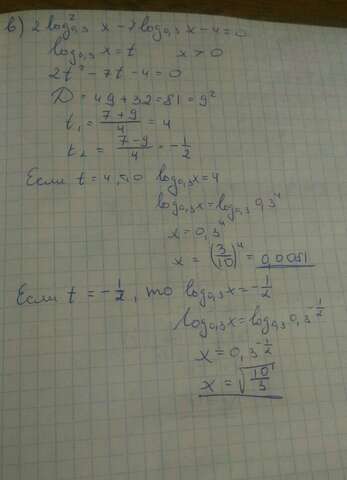 в) 2 log²₀,₃ x - 7 log₀,₃ x - 4 = 0
log₀,₃ x = t x > 0
2t² - 7t - 4 = 0
D = 49 + 32 = 81 = 9²
t₁ = (7 + 9)/4 = 4
t₂ = (7 - 9)/4 = -1/2
Если t = 4, то log₀,₃ x = 4
log₀,₃ x = log₀,₃ 0,3⁴
x = 0,3⁴
x = (3/10)⁴ = 0,0081
Если t = -1/2, то log₀,₃ x = -1/2
log₀,₃ x = log₀,₃ 0,3^(-1/2)
x = 0,3^(-1/2)
x = √(10/3)